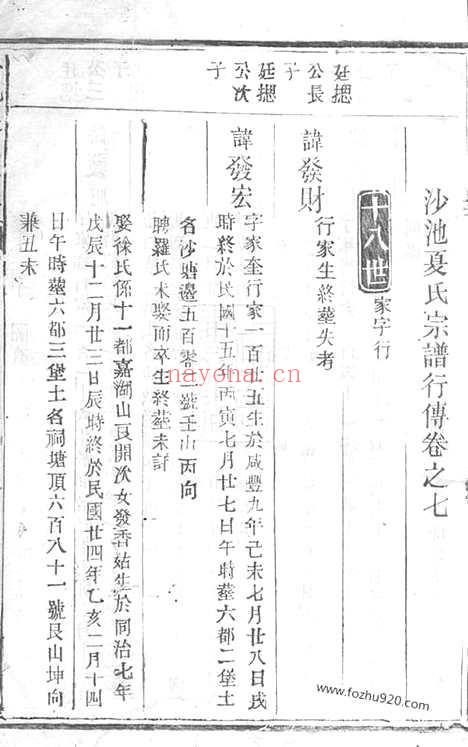 沙池夏氏宗譜行傳卷之七
十八世
家字行
廷摠
公長
子
諱發財
行家生終塟失考
廷摠
公次
子
諱發宏
字家奎行家一百廿五生於咸豐九年己未七月廿八日戌
時終於民國十五年丙寅七月廿七日午時塟六都二堡土
名沙塘邊五百零二號壬山丙向
聘羅氏未娶而卒生終塟未詳
娶徐氏係十一都嘉湖山良開次女發香姑生於同治七年
戊辰十二月廿三日辰時終於民國廿四年乙亥二月十四
日午時塟六都三堡土名祠塘頂六百八十一號艮山坤向
兼丑未
nayona.cn
www.fozhu920.com